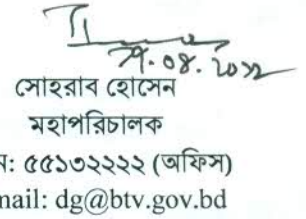 সোহরাব হোসেন
মহাপরিচালক
ন: ৫৫১৩২২২২ (অফিস)
mail: dg@btv.gov.bd